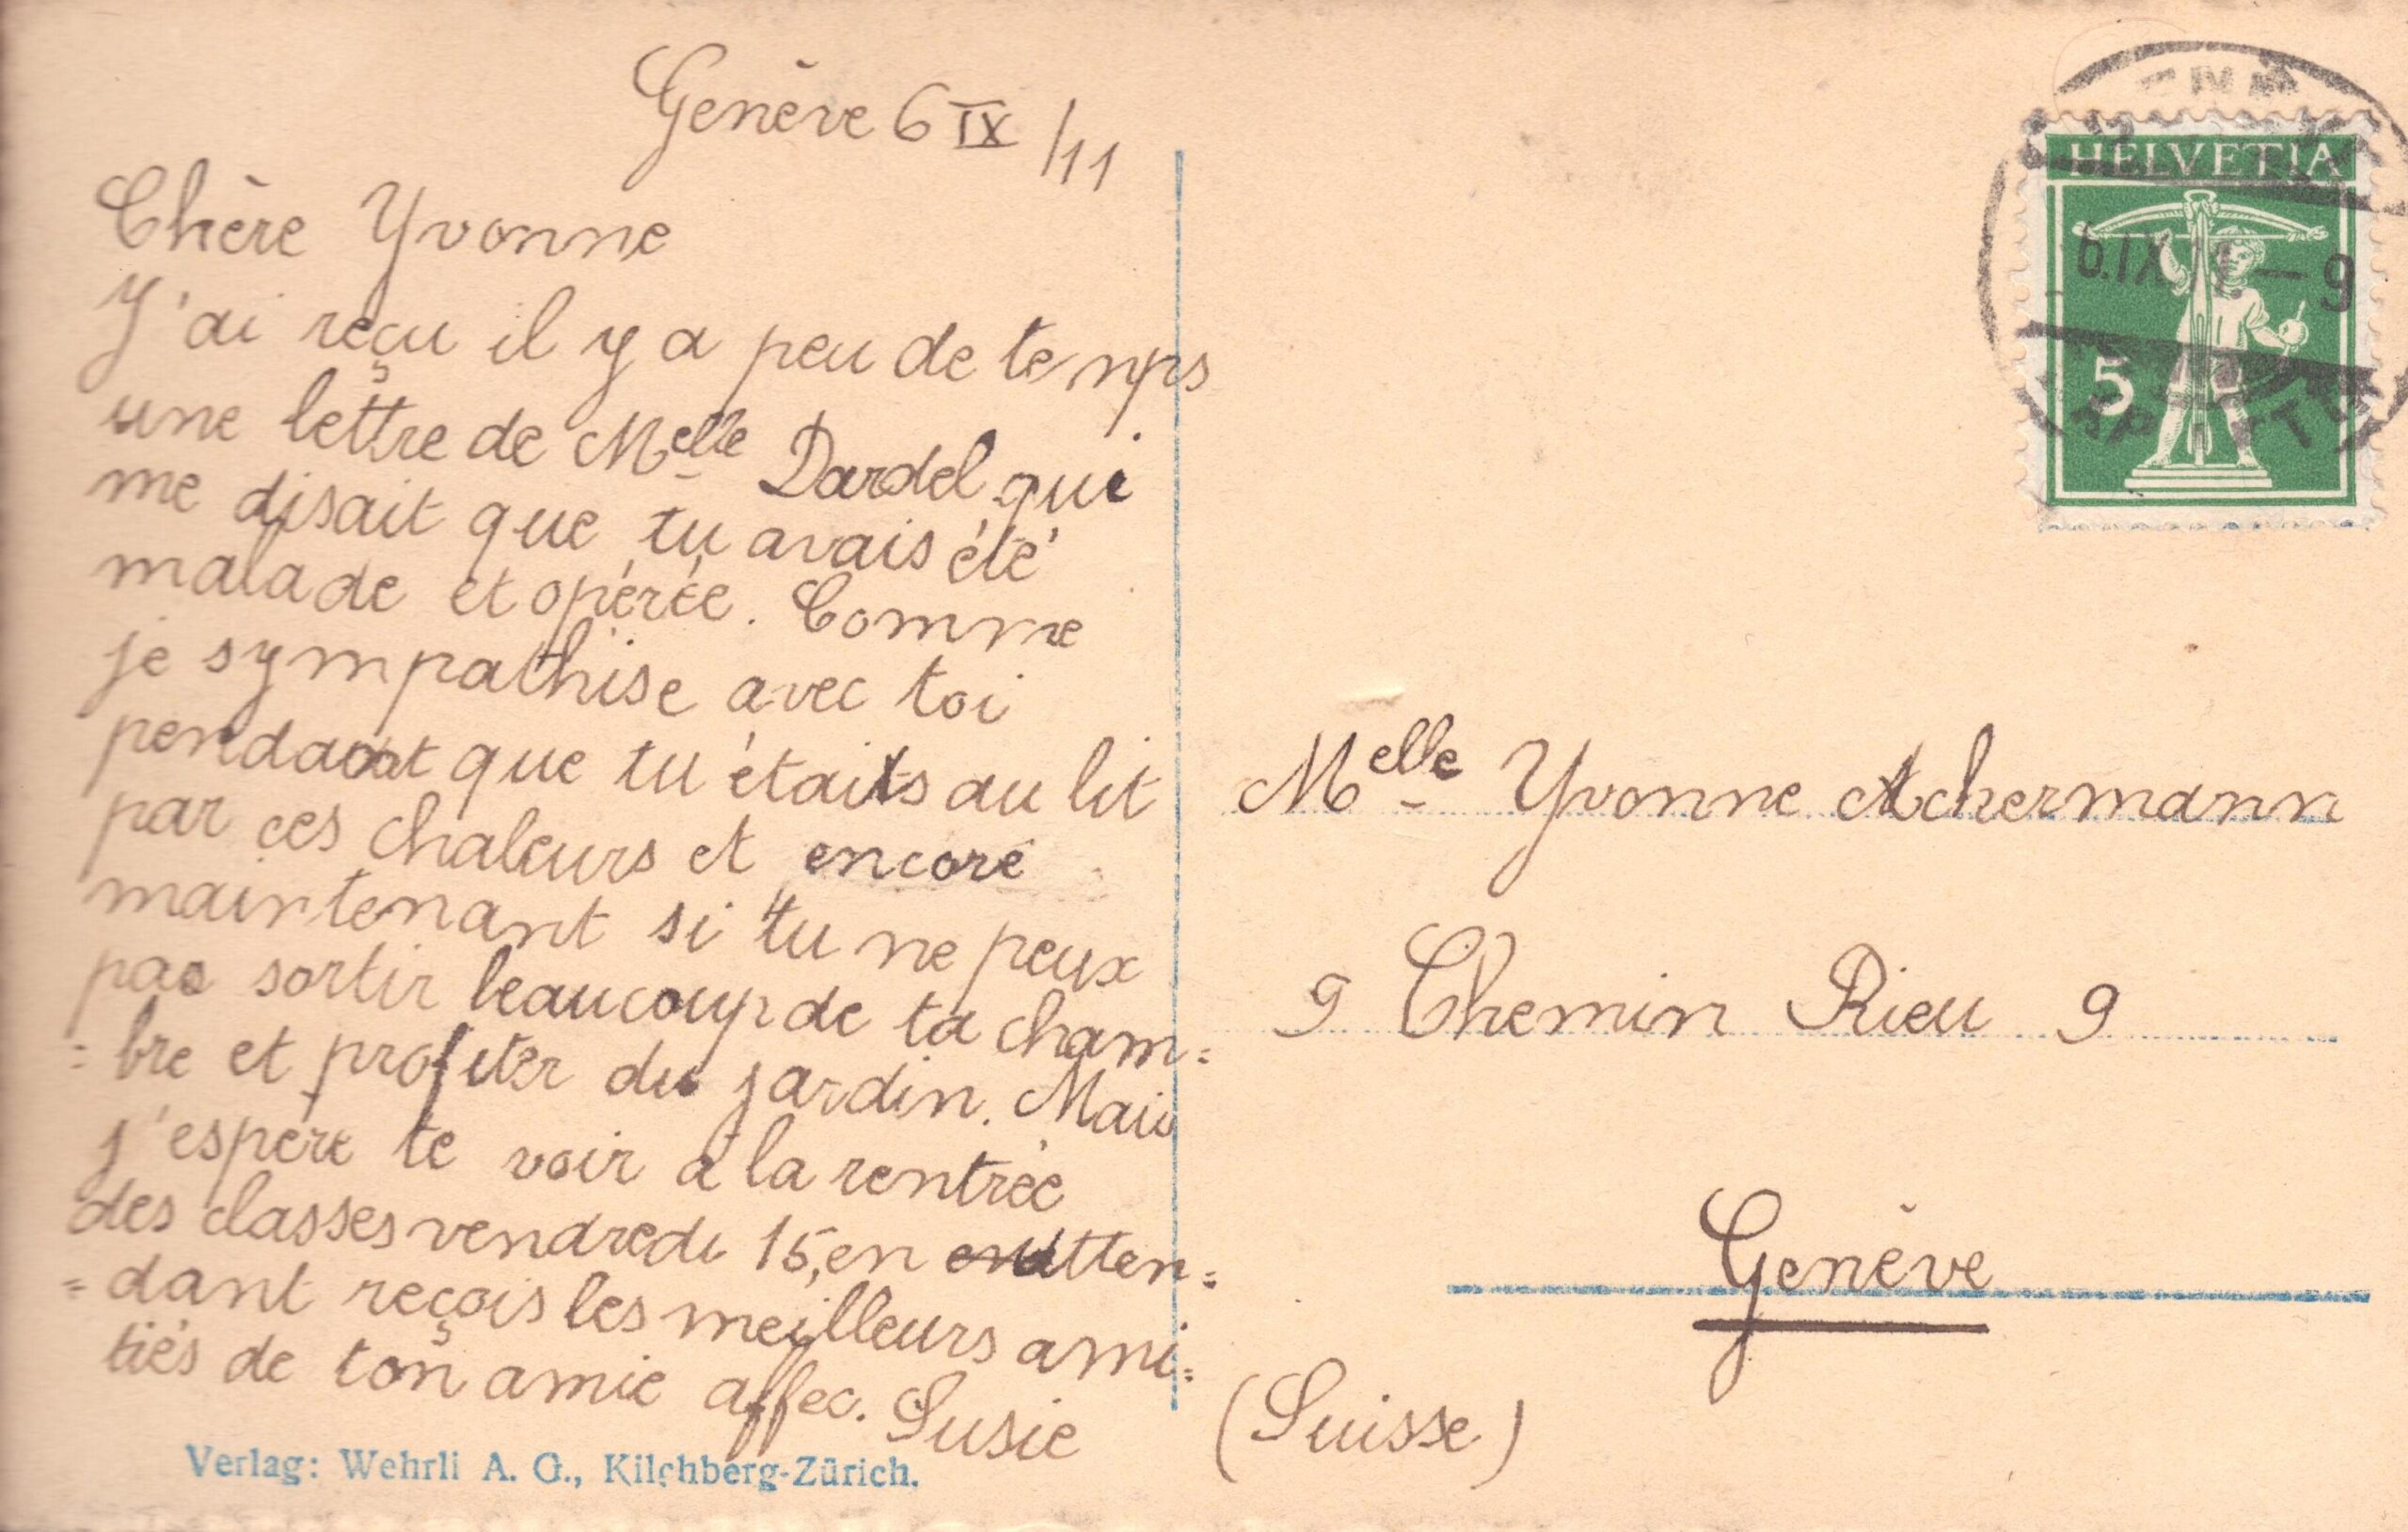 Genève 6 IX /11
Chère Yvonne
J'ai reçu il y a peu de temps
une lettre de Melle Dardel qui
me disait que tu avais été
malade et opérée. Comme
je sympathise avec toi
pendant que tu étais au lit
par ces chaleurs et encore
maintenant si tu ne peux
pas sortir beaucoup de ta cham=
=bre et profiter du jardin. Mais
j'espère te voir à la rentrée
des classes vendredi 15, en atten=
=dant reçois les meilleurs ami=
tiés de ton amie affec. Susie
Verlag: Wehrli A. G., Kilchberg-Zürich.
HELVETIA
6.IX 11.–9
5
Melle Yvonne Achermann
9 Chemin Rieu 9
Genève
(Suisse)